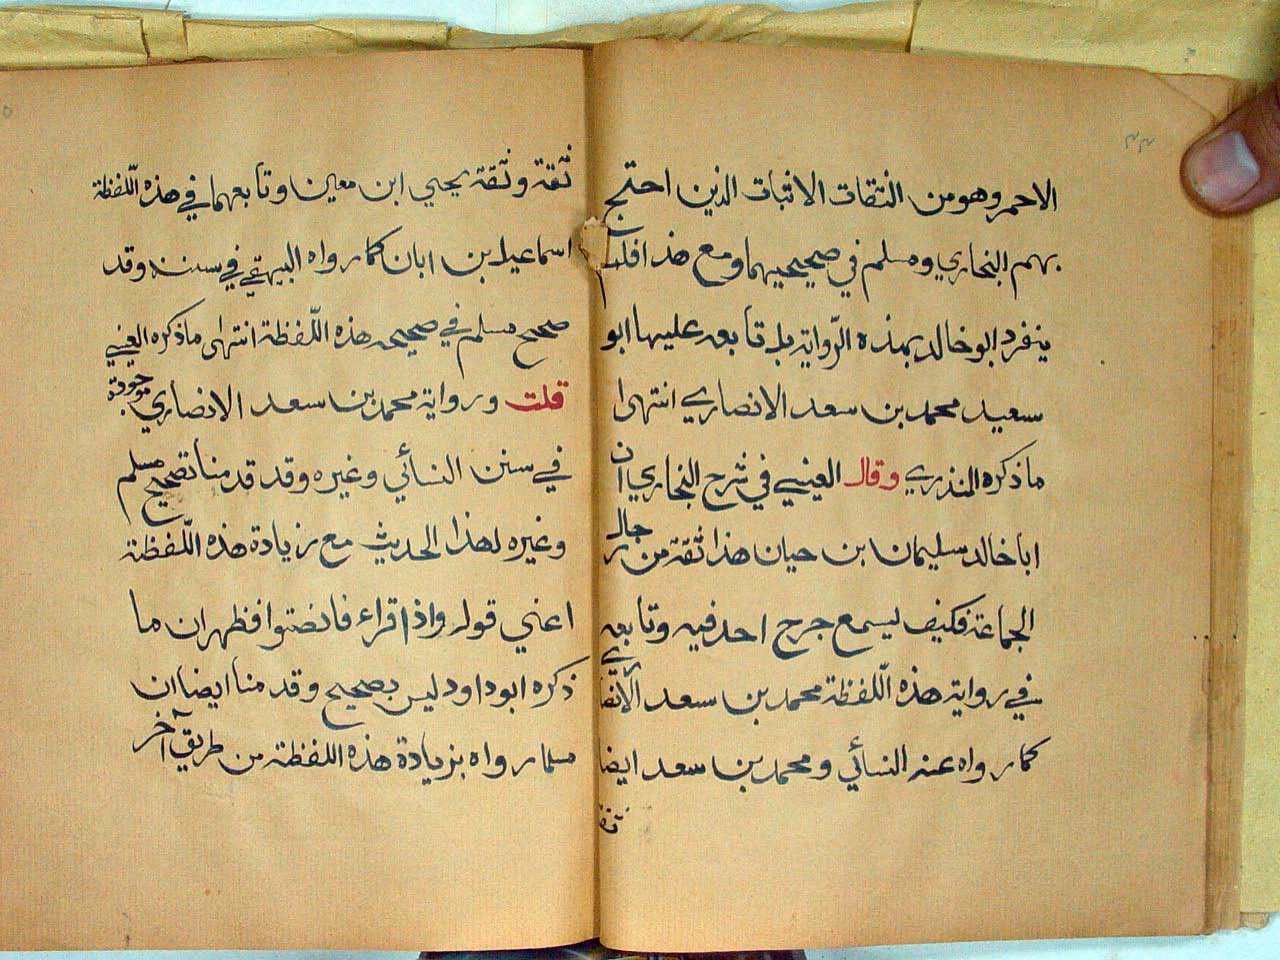 ٣٣
الاحمر وهو من الثقات الاثبات الذين احتج
بهم البخاري ومسلم في صحيحيهما ومع هذا فلم
ينفرد ابو خالد بهذه الرّواية بل تابعه عليها ابو
سعيد محمد بن سعد الانصاري انتهى
ما ذكره المنذري وقال العيني في شرح البخاري ان
ابا خالد سليمان ابن حيان هذا ثقة من رجال
الجماعة فكيف يسمع جرح احد فيه وتابعه
في رواية هذه اللّفظة محمد بن سعد الانصاري
كما رواه عنه النسائي ومحمد بن سعد ايضا
ثقة
ثقة وثقة يحيي ابن معين وتابعهما في هذه اللّفظة
اسماعيل بن ابان كما رواه البيهقي في سننه وقد
صحح مسلم في صحيحه هذه اللّفظة انتهى ما ذكره العيني
قلت ورواية محمد بن سعد الانصاري موجودة
في سنن النسائي وغيره وقد قدمنا تصحيح مسلم
وغيره لهذا الحديث مع زيادة هذه اللّفظة
اعني قوله واذا قراء فانصتوا فظهر ان ما
ذكره ابو داود ليس بصحيح وقدمنا ايضا ان
مسلما رواه بزيادة هذه اللفظة من طريق آخر